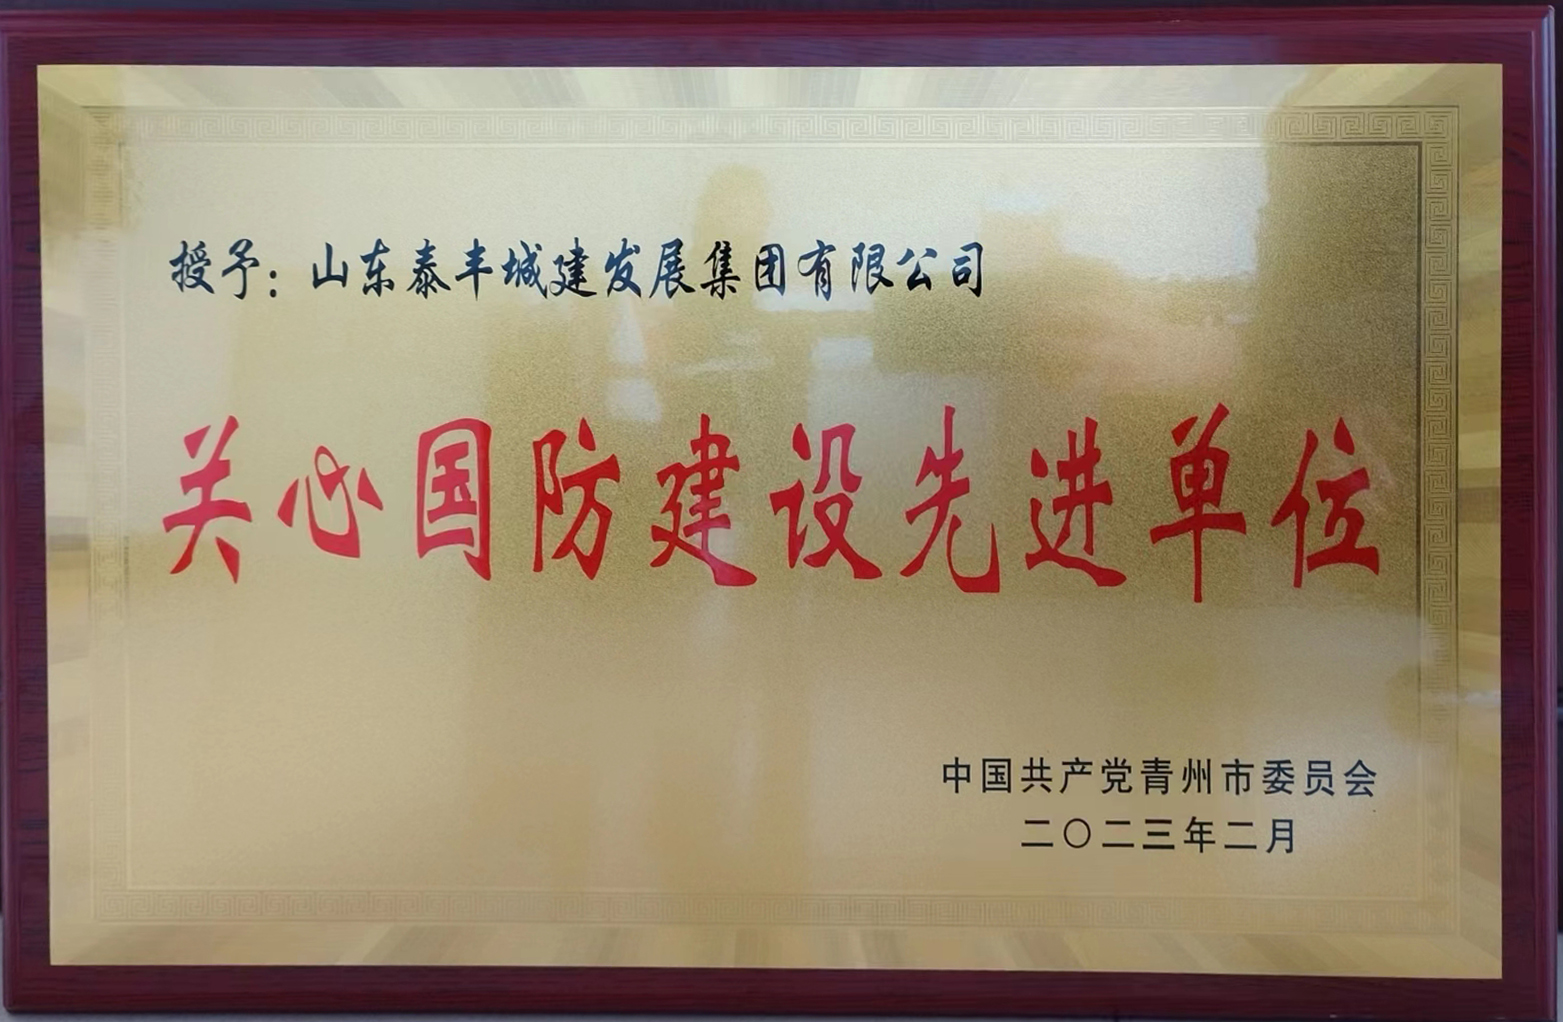 授予：山东泰丰城建发展集团有限公司
关心国防建设先进单位
中国共产党青州市委员会
二〇二三年二月